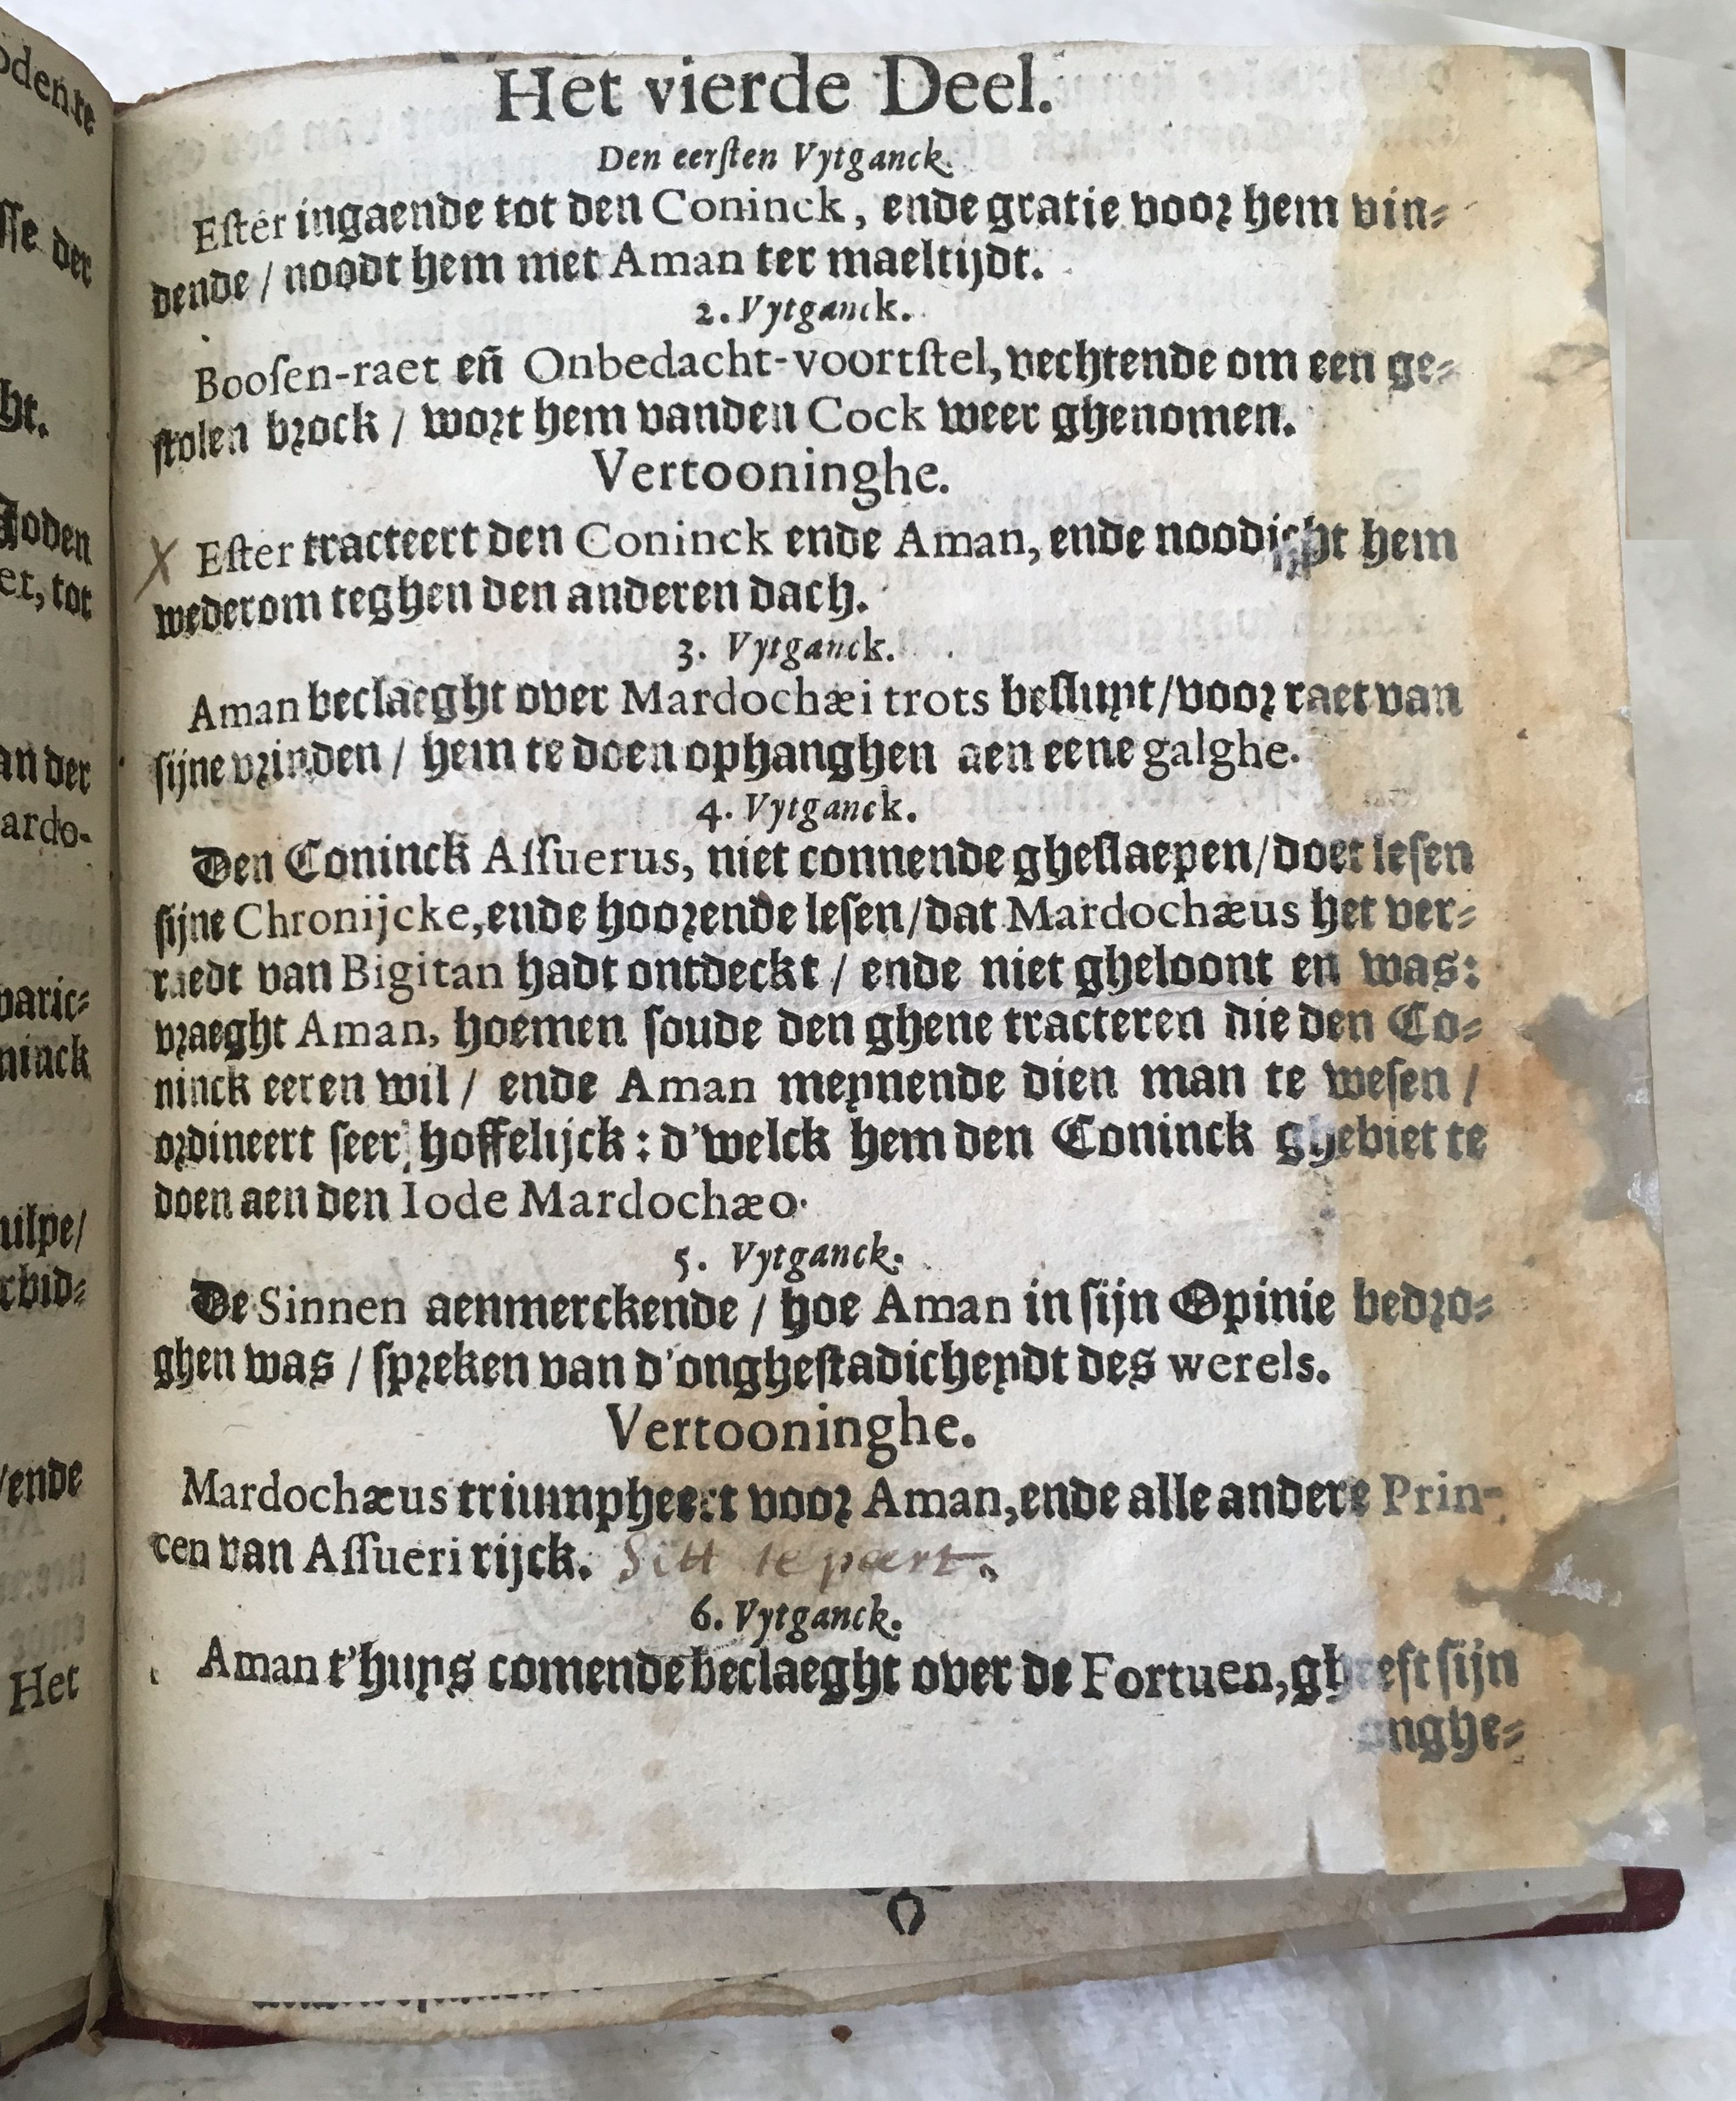 Het vierde Deel.
Den eerſten Vytganck.
Eſter ingaende tot den Coninck, ende gratie voor hem vin-
dende / noodt hem met Aman ter maeltijdt.
2. Vytganck.
Booſen-raet en̄ Onbedacht-voortſtel, vechtende om een ge-
ſtolen brock / wort hem vanden Cock weer ghenomen.
Vertooninghe.
X Eſter tracteert den Coninck ende Aman, ende noodicht hem
wederom teghen den anderen dach.
3. Vytganck.
Aman beclaeght over Mardochæi trots beſluyt / voor raet van
ſijne vrinden / hem te doen ophanghen aen eene galghe.
4. Vytganck.
Den Coninck Aſſuerus, niet connende gheſlaepen / doet leſen
ſijne Chronijcke, ende hoorende leſen / dat Mardochæus het ver-
raedt van Bigitan hadt ontdeckt / ende niet gheloont en was:
vraeght Aman, hoemen ſoude den ghene tracteren die den Co-
ninck eeren wil / ende Aman meynende dien man te weſen /
ordineert ſeer hoffelijck: d'welck hem den Coninck ghebiet te
doen aen den Iode Mardochæo.
5. Vytganck.
De Sinnen aenmerckende / hoe Aman in ſijn Opinie bedro-
ghen was / ſpreken van d'ongheſtadicheydt des werels.
Vertooninghe.
Mardochæus triumpheert voor Aman, ende alle andere Prin-
cen van Aſſueri rijck. Sitt te peert.
6. Vytganck.
Aman t'huys comende beclaeght over de Fortuen, gheeft ſijn
onghe-
oden te
ſſe der
ht.
Joden
er, tot
an der
ardo-
varic-
ninck
hulpe /
rbid-
/ ende
Het